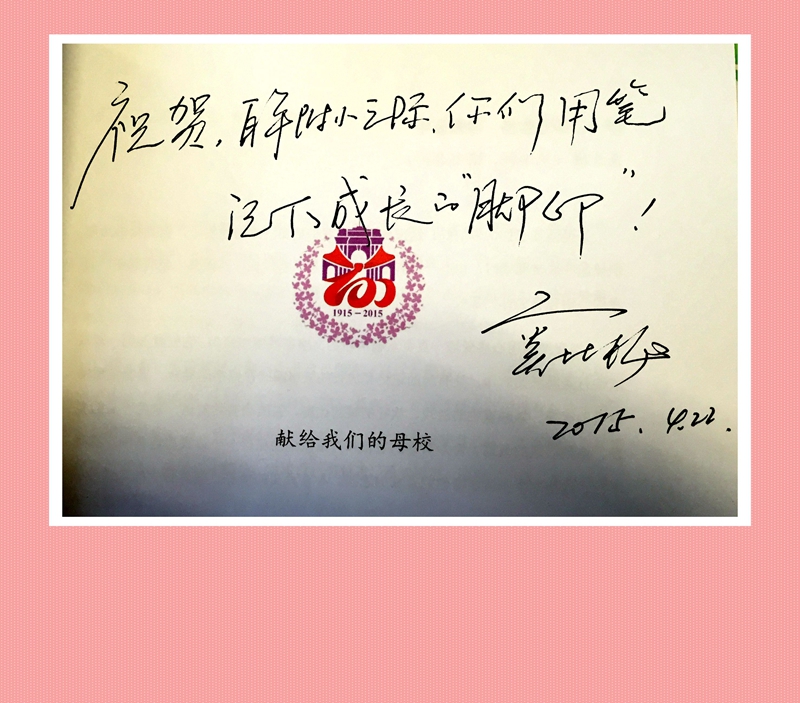 祝贺,百年附小之际,你们用笔
记下成长的“脚印”!
1915-2015
窦桂梅
2015.4.22.
献给我们的母校